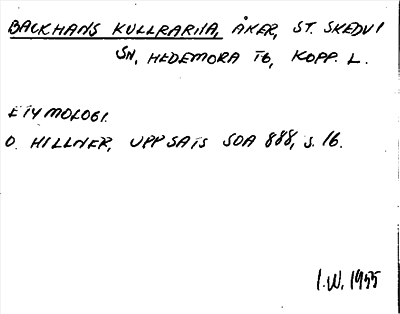 BACKHANS KULLRARNA, ÅKER, ST. SKEDVI
SN, HEDEMORA TG, KOPP. L.
ETYMOLOGI.
O. HILLNER, UPPSATS SOA 888, S. 16.
I.W. 1955